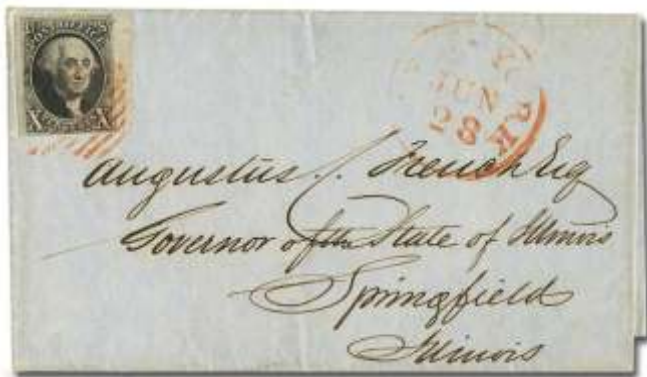 POST OFFICE
X X
JUN
28
RK
Augustus C. French Esq
Governor of the State of Illinois
Springfield
Illinois